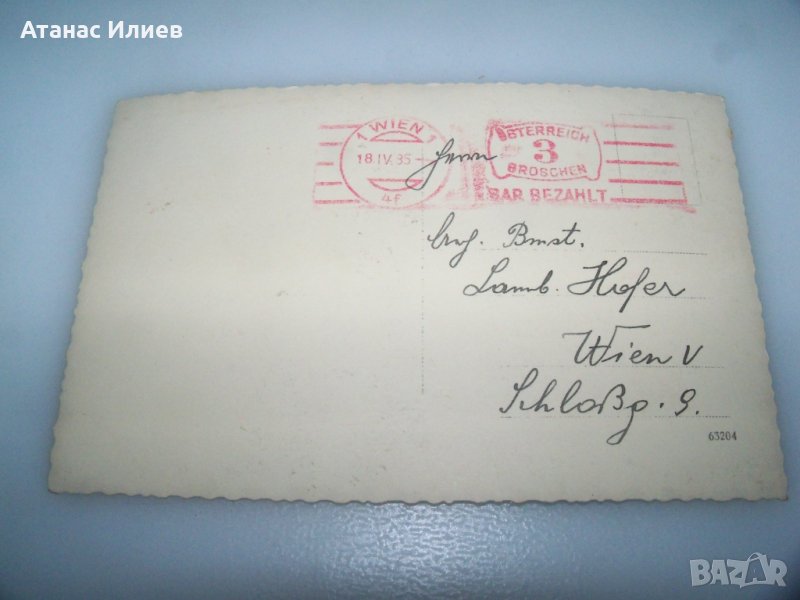 Атанас Илиев
1 WIEN 1
18.IV.35-
ÖSTERREICH
3
GROSCHEN
BAR BEZAHLT
Herrn
Bmst.
Lamb. Hofer
Wien V
Schloßg. 9.
63204
BAZAR